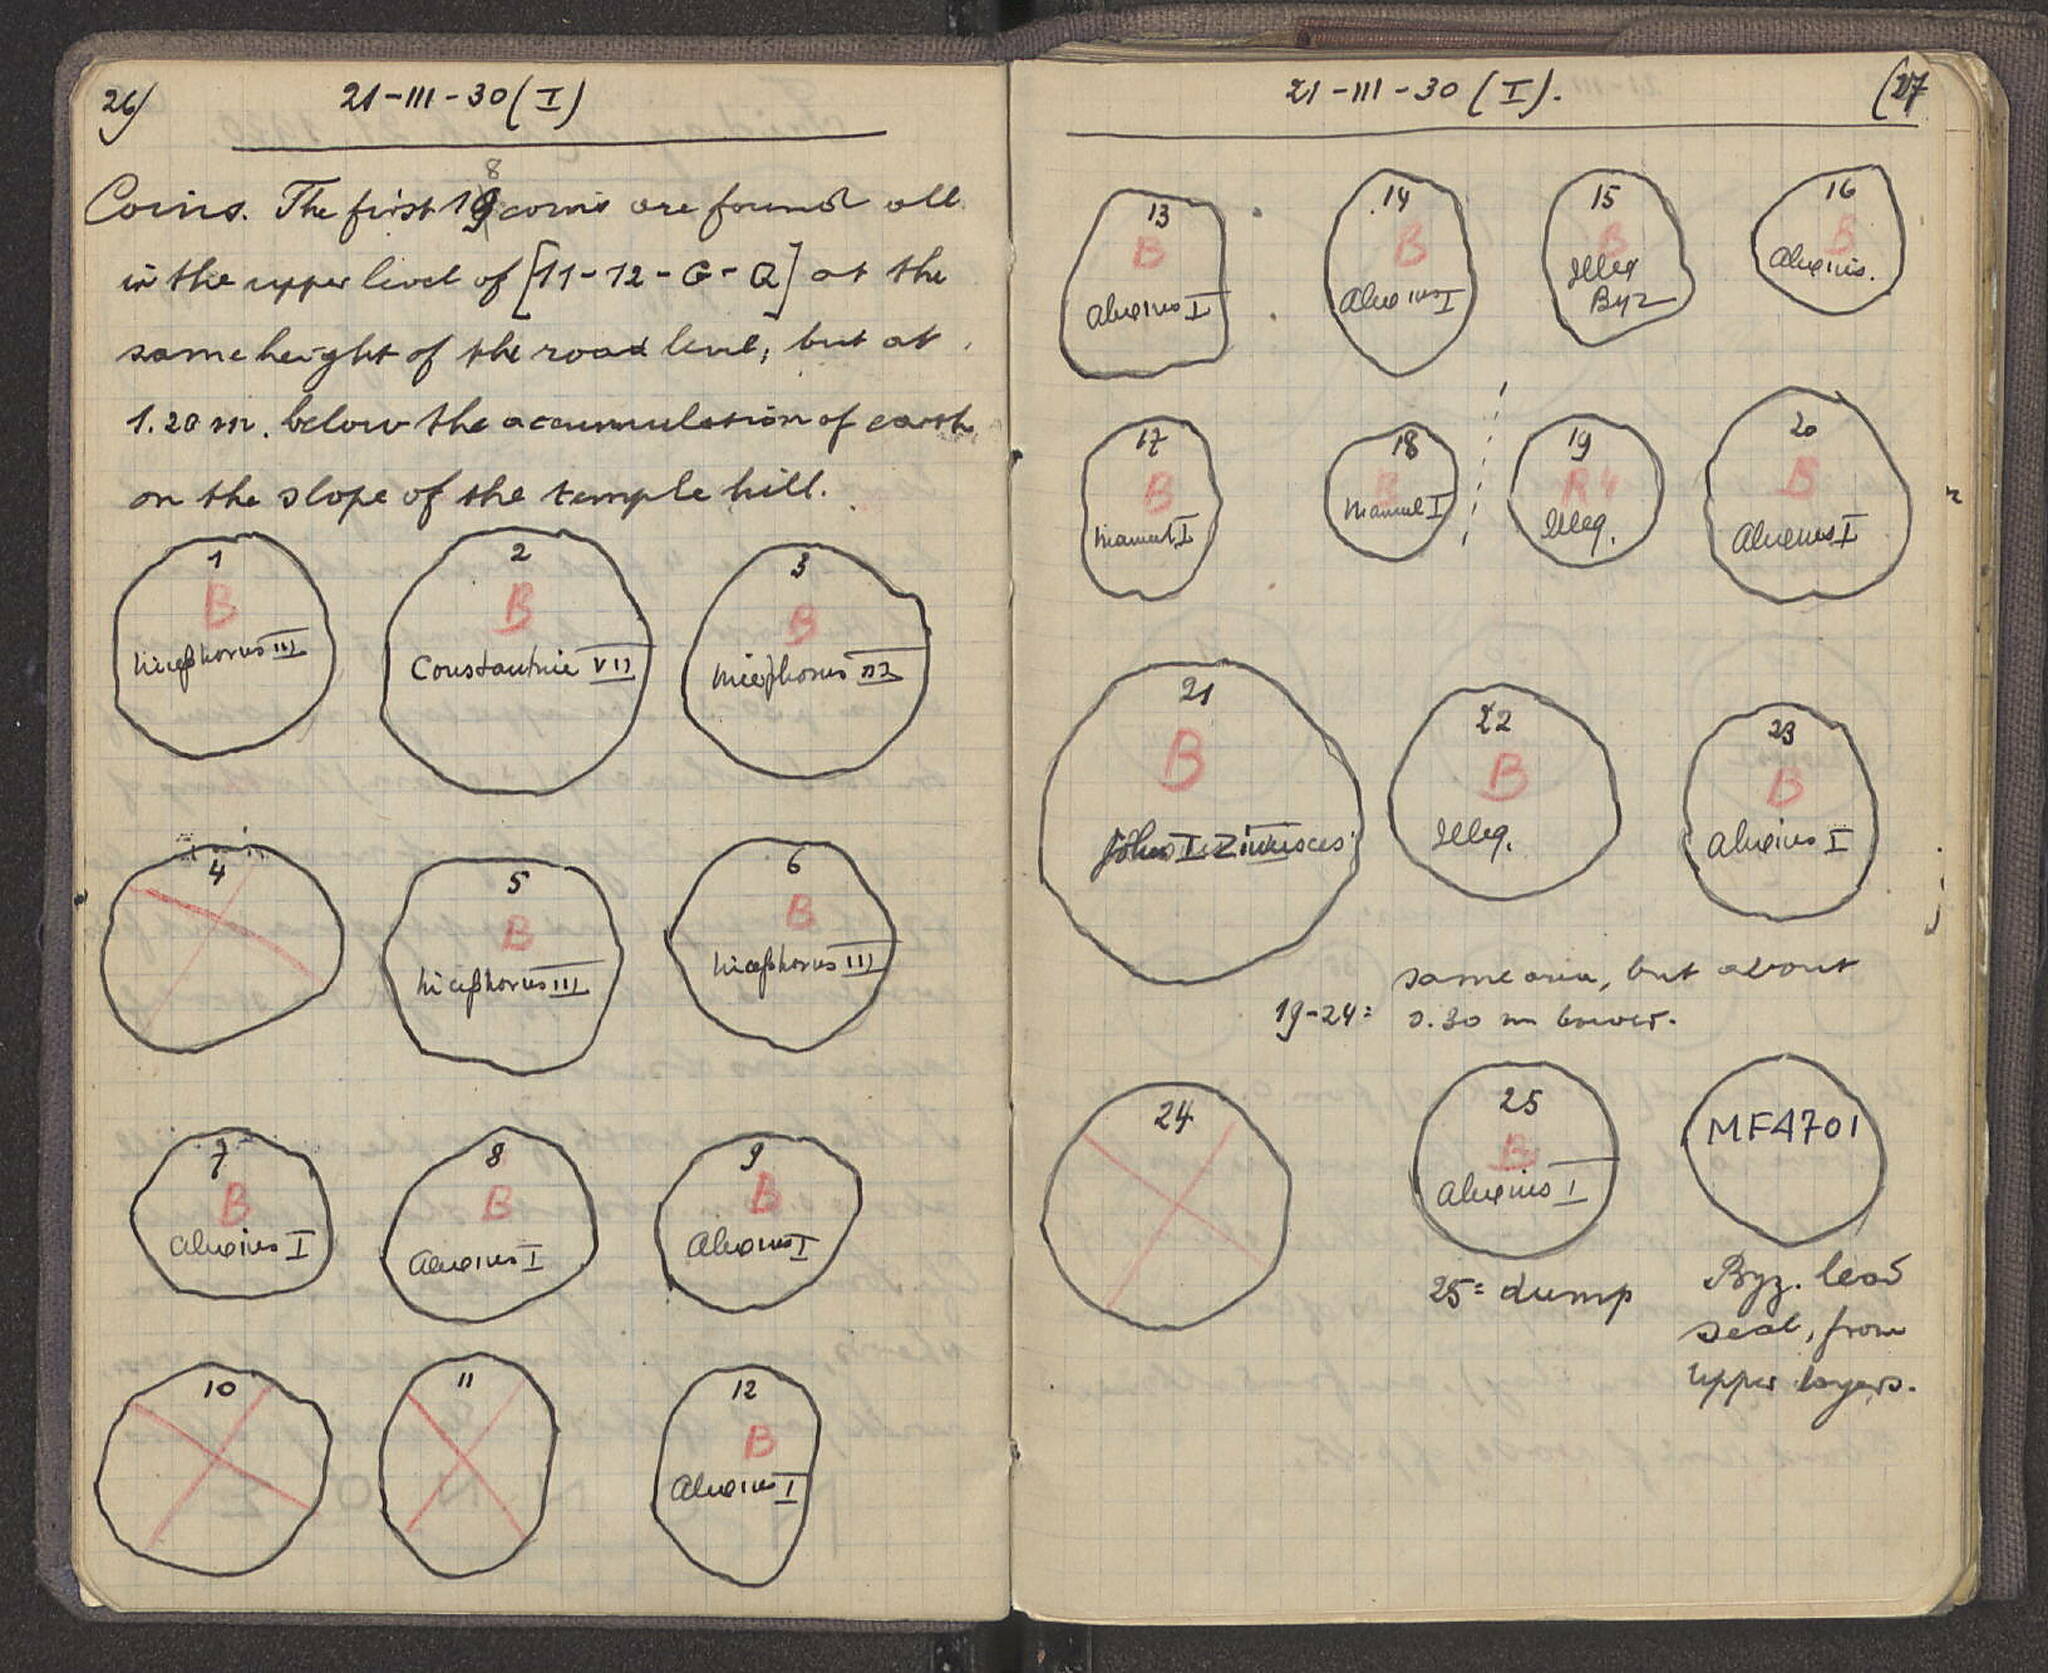 26)
21-III-30 (I)
Coins. The first 18 coins are found all
in the upper level of [11-12-G-Q] at the
same height of the road level, but at
1.20 m. below the accumulation of earth
on the slope of the temple hill.
1
B
Nicephorus III
2
B
Constantine VII
3
B
Nicephorus III
4
5
B
Nicephorus III
6
B
Nicephorus III
7
B
Alexius I
8
B
Alexius I
9
B
Alexius I
10
11
12
B
Alexius I
21-III-30 (I).
(27
13
B
Alexius I
14
B
Alexius I
15
B
Illeg
Byz
16
B
Alexius.
17
B
Manuel I
18
B
Manuel I
19
R4
Illeg.
20
B
Alexius I
21
B
John I Zimisces
22
B
Illeg.
23
B
Alexius I
same area, but about
19-24= 0.30 m lower.
24
25
B
Alexius I
MF4701
25= dump
Byz. lead
seal, from
upper layers.